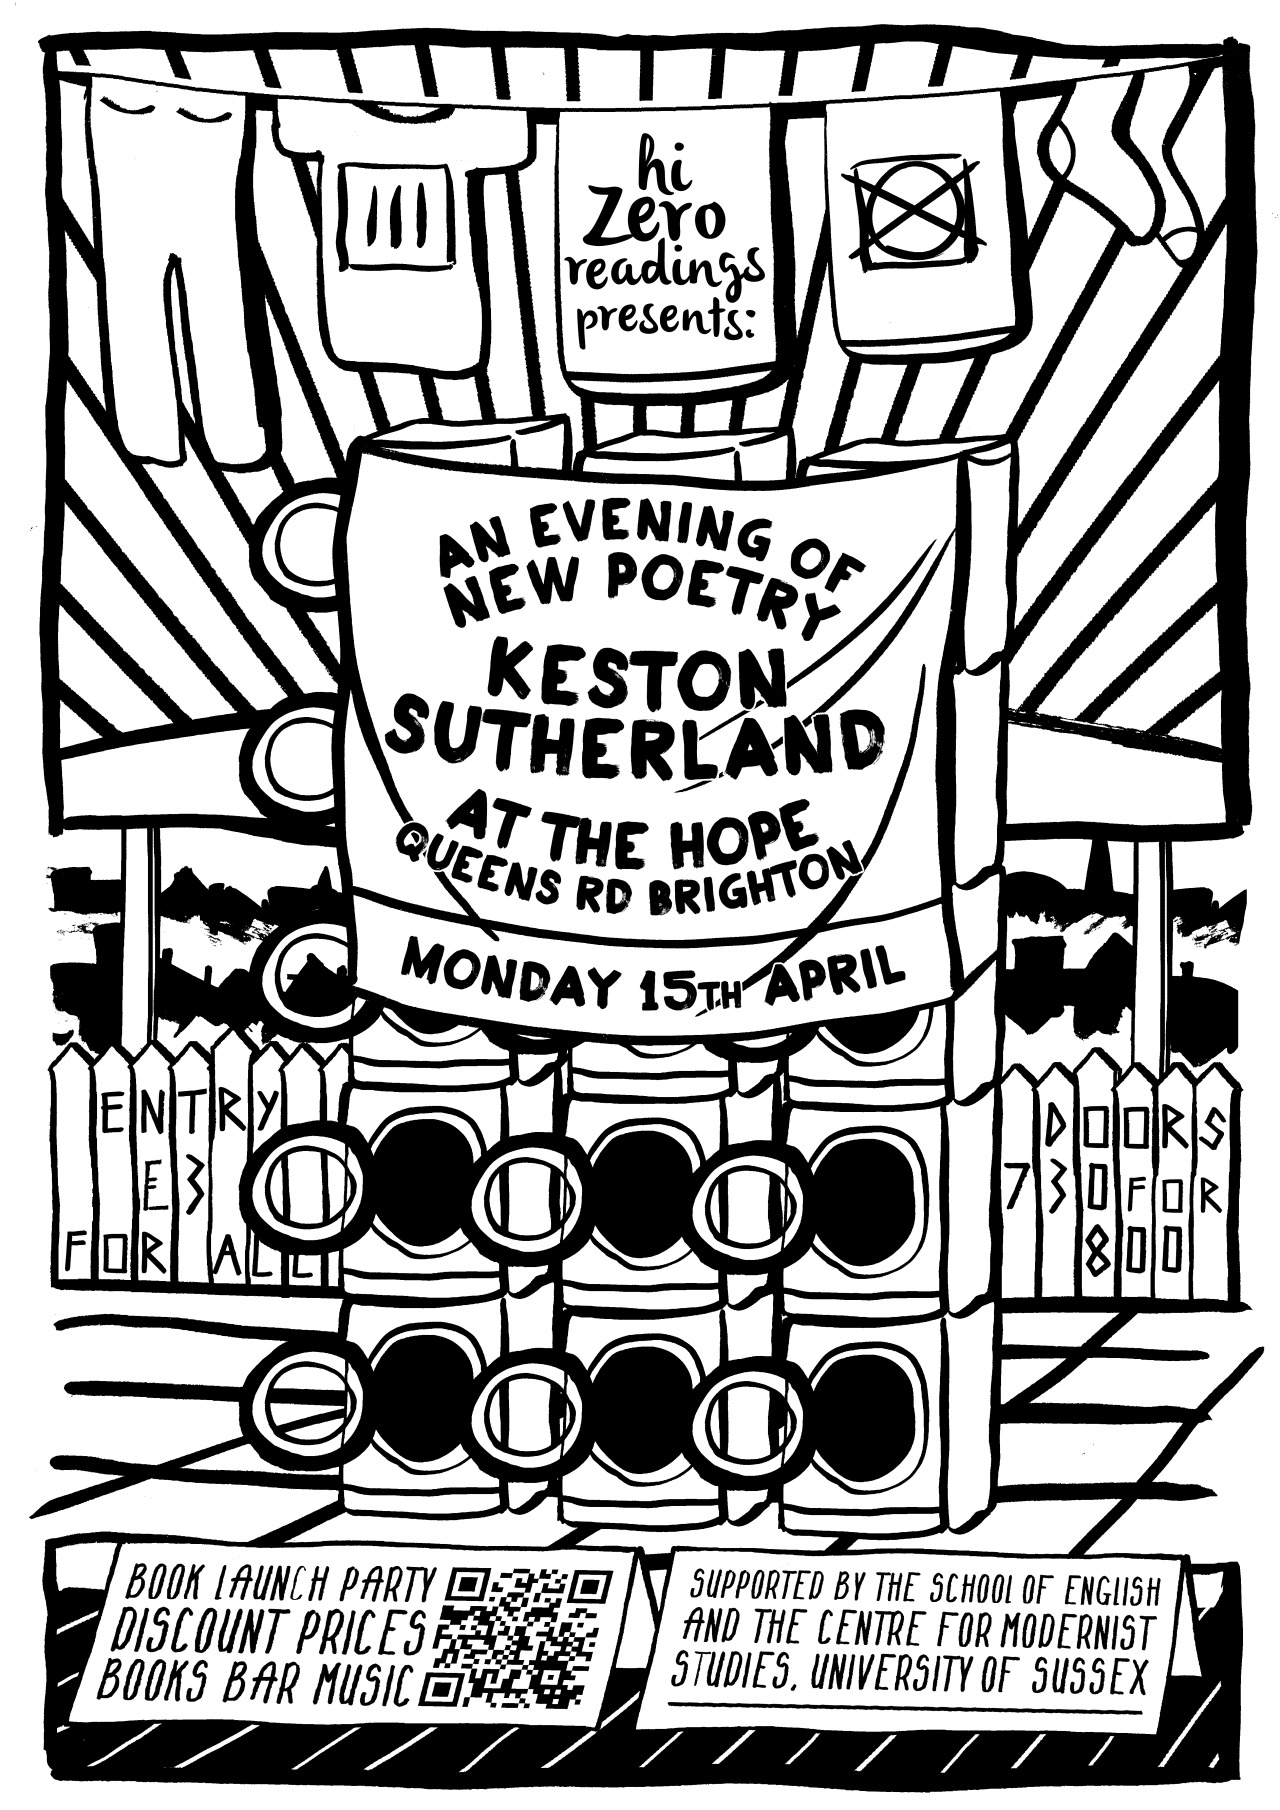 hi
Zero
readings
presents:
AN EVENING OF
NEW POETRY
KESTON
SUTHERLAND
AT THE HOPE
QUEENS RD BRIGHTON
MONDAY 15TH APRIL
ENTRY
£3
FOR ALL
DOORS
730 FOR
800
BOOK LAUNCH PARTY
DISCOUNT PRICES
BOOKS BAR MUSIC
SUPPORTED BY THE SCHOOL OF ENGLISH
AND THE CENTRE FOR MODERNIST
STUDIES, UNIVERSITY OF SUSSEX